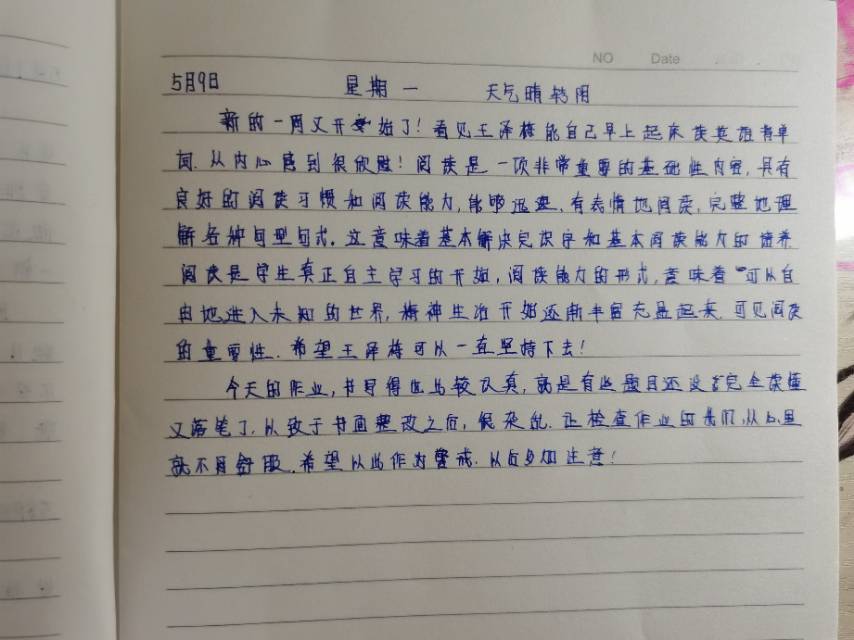 NO Date
5月9日 星期一 天气晴转阴
新的一周又开始了!看见王泽梅能自己早上起来读英雄清单
间.从内心感到很欣慰!阅读是一项非常重要的基础性内容,具有
良好的阅读习惯和阅读能力,能够迅速,有表情地阅读,完整地理
解各种句型句式.这意味着基本解决完识字和基本阅读能力的培养
阅读是学生真正自主学习的开始,阅读能力的形式,意味着"可以自
由地进入未知的世界,精神生活开始逐渐丰富充盈起来.可见阅读
的重要性.希望王泽梅可以一直坚持下去!
今天的作业,书写得也比较认真,就是有些题目还没有完全读懂
又落笔了.以致于书面整改之后,很杂乱.让检查作业的我们,从心里
就不再舒服.希望以此作为警戒.以后多加注意!